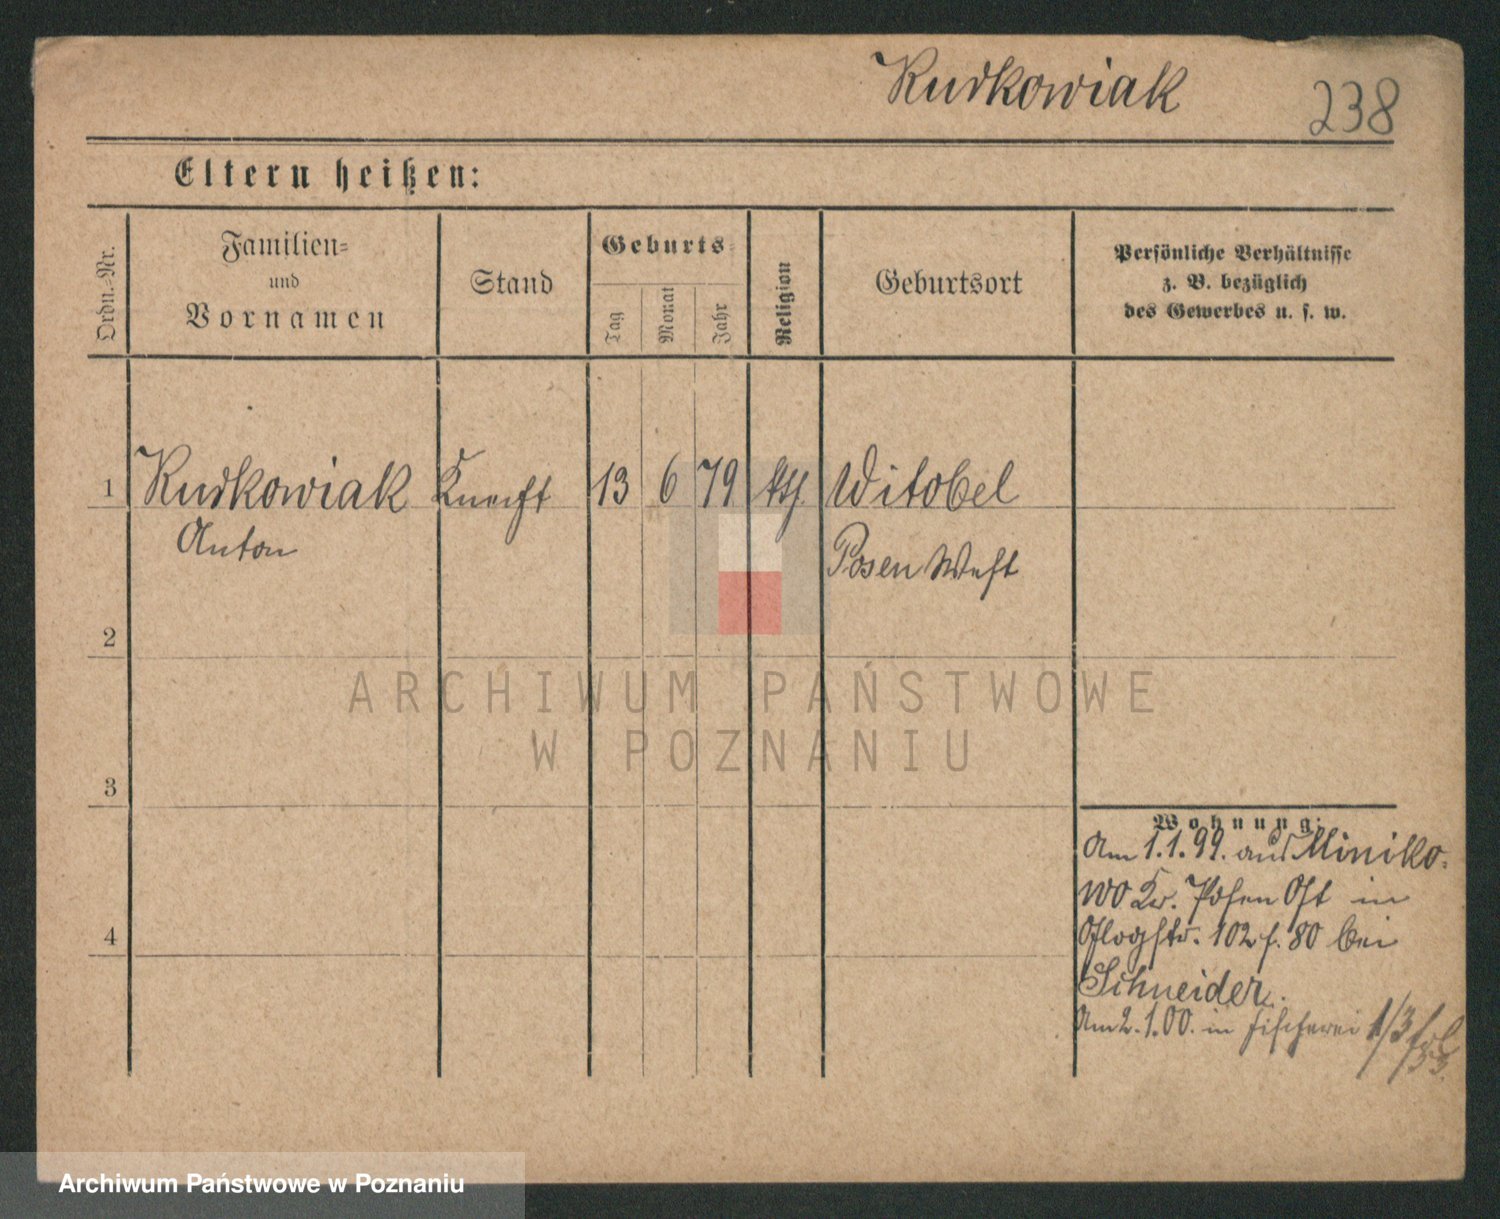 Rudkowiak 238
Eltern heißen:
Ordn.-Nr.
Familien-
und
Vornamen
Stand
Geburts-
Tag
Monat
Jahr
Religion
Geburtsort
Persönliche Verhältnisse
z. B. bezüglich
des Gewerbes u. s. w.
1 Rudkowiak Knecht 13 6 79 kth. Witobel
Anton Posen West
2
3
4
Wohnung:
Am 1.1.99. aus Miniko-
wo Kr. Posen Ost in
102 f. 80 bei
Schneider.
Am 2.1.00. in Fischerei 1/3
ARCHIWUM PAŃSTWOWE
W POZNANIU
Archiwum Państwowe w Poznaniu